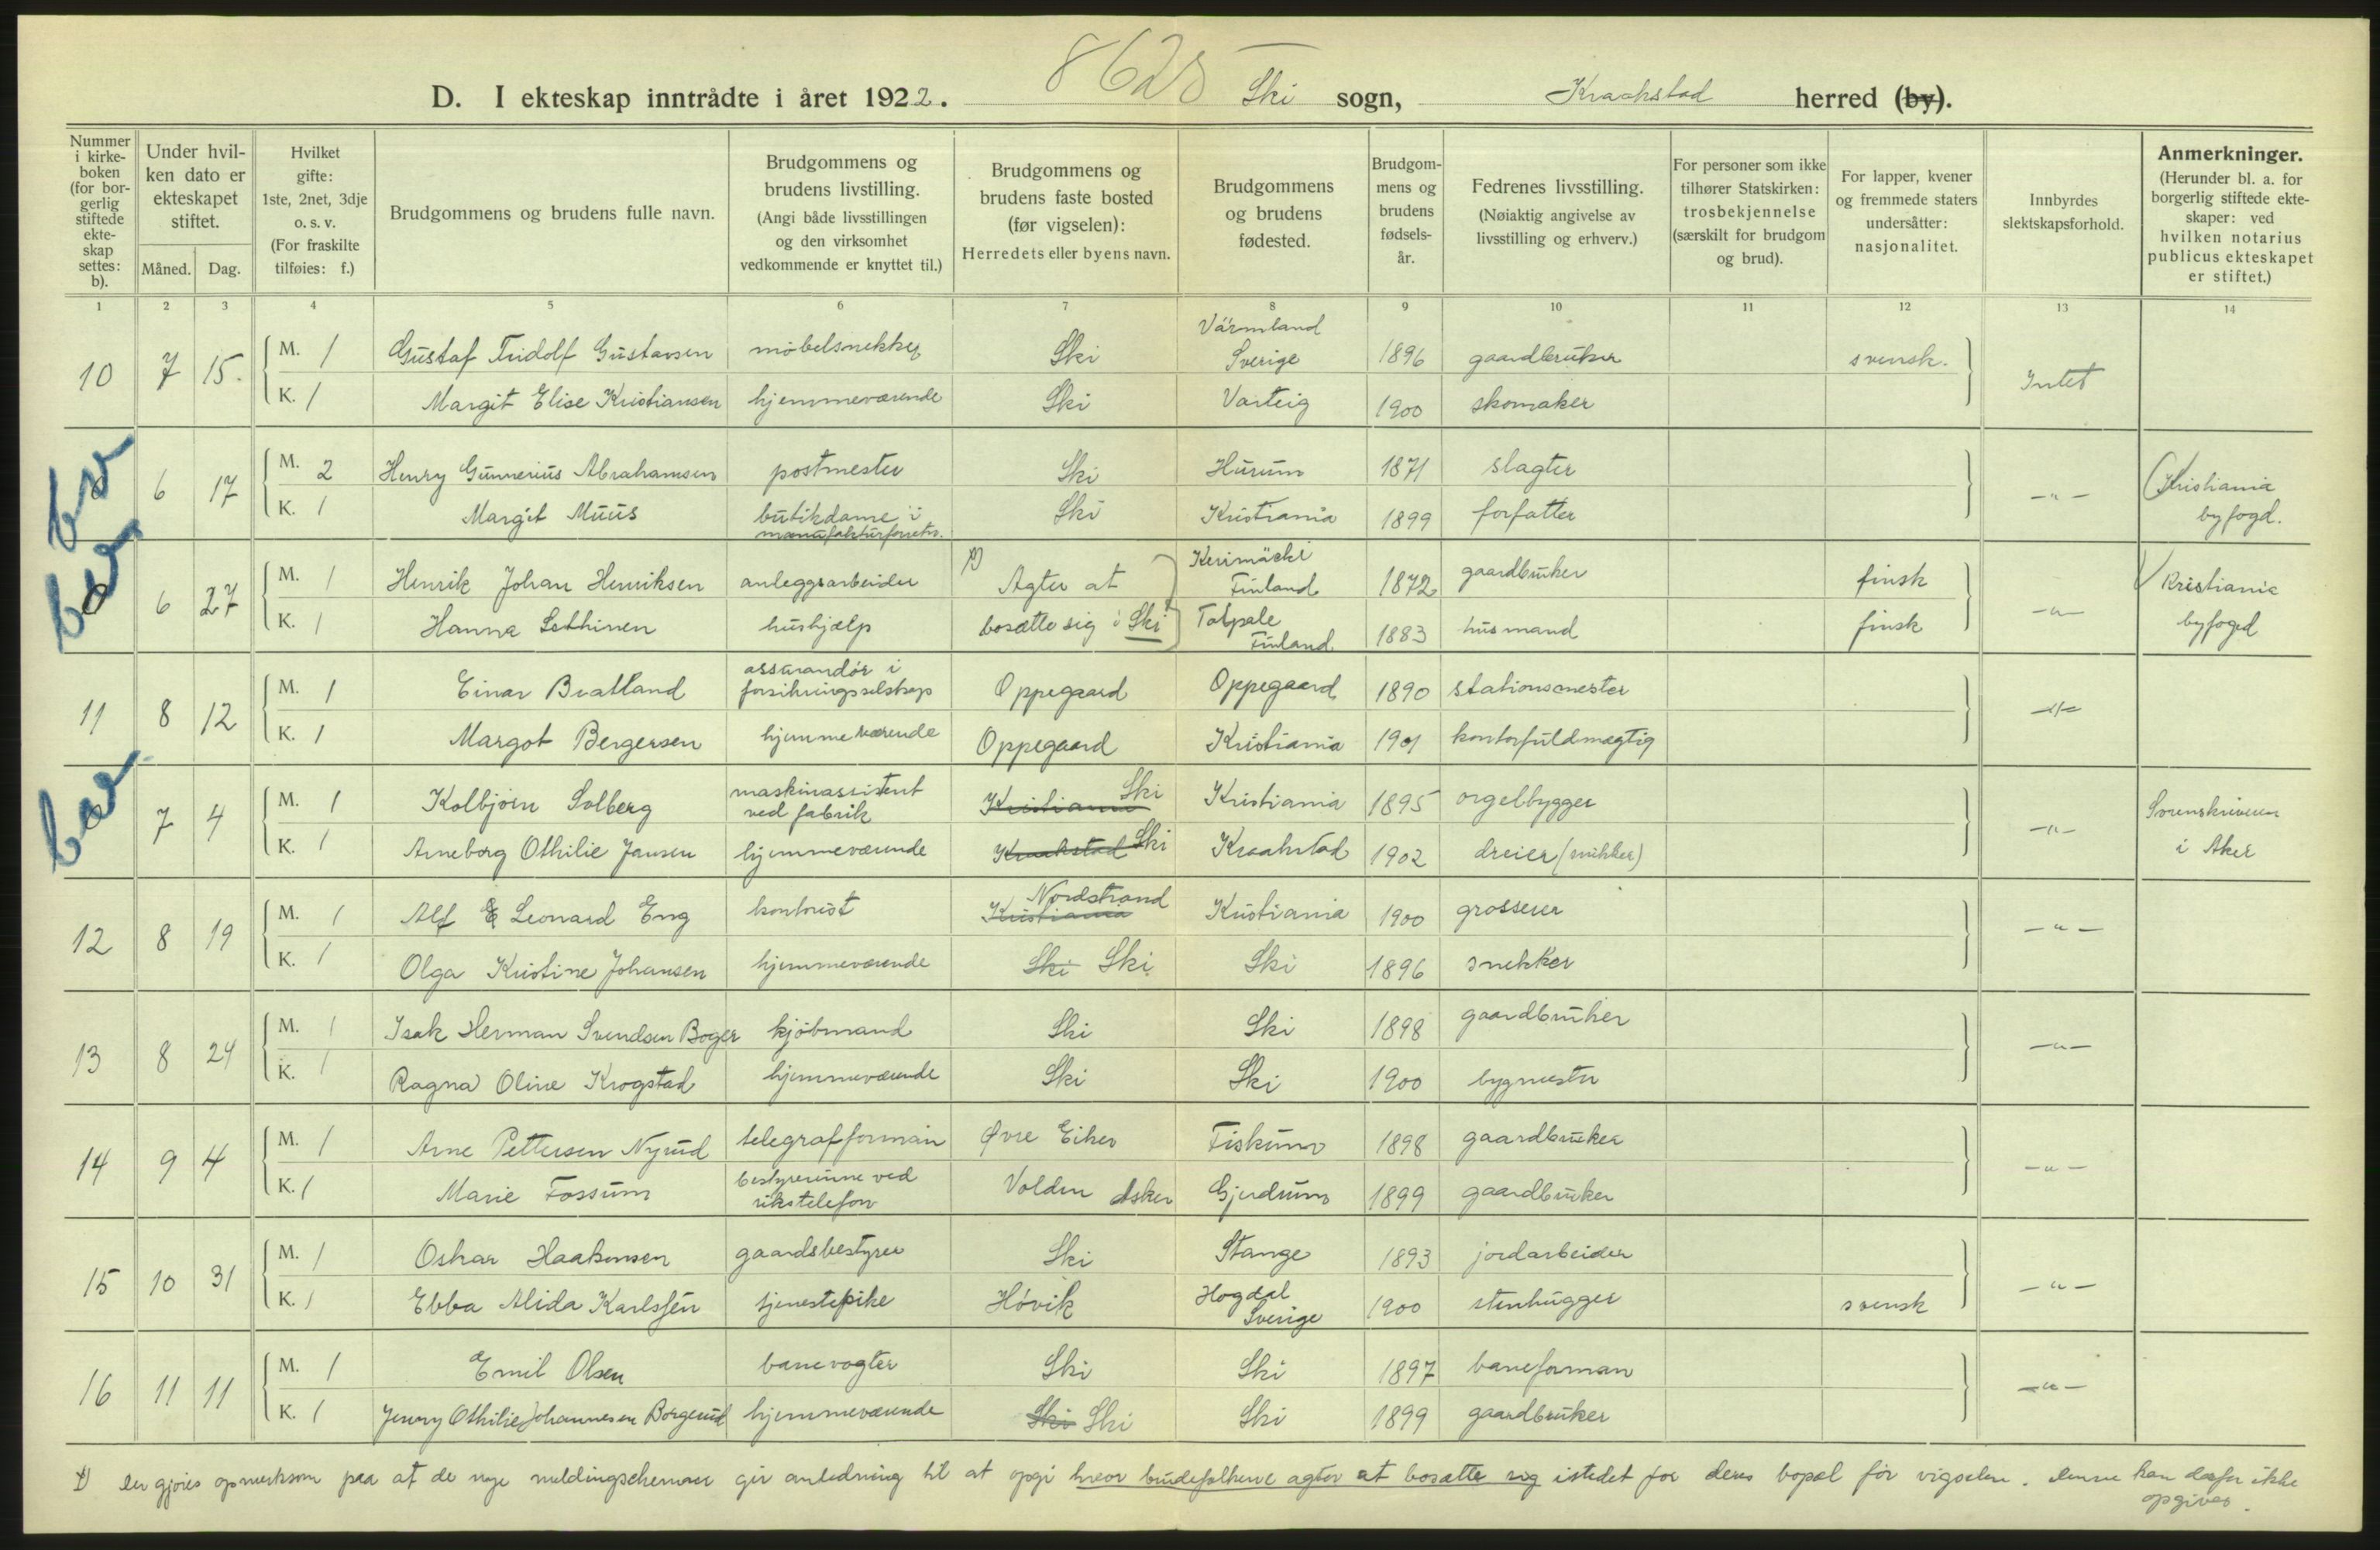 8625
D. I ekteskap inntrådte i året 1922. Ski sogn, Kraakstad herred (by).
Nummer i kirkeboken (for borgerlig stiftede ekteskap settes: b).
Under hvilken dato er ekteskapet stiftet.
Måned. Dag.
Hvilket gifte: 1ste, 2net, 3dje o. s. v. (For fraskilte tilføies: f.)
Brudgommens og brudens fulle navn.
Brudgommens og brudens livstilling. (Angi både livsstillingen og den virksomhet vedkommende er knyttet til.)
Brudgommens og brudens faste bosted (før vigselen): Herredets eller byens navn.
Brudgommens og brudens fødested.
Brudgommens og brudens fødselsår.
Fedrenes livsstilling. (Nøiaktig angivelse av livsstilling og erhverv.)
For personer som ikke tilhører Statskirken: trosbekjennelse (særskilt for brudgom og brud).
For lapper, kvener og fremmede staters undersåtter: nasjonalitet.
Innbyrdes slektskapsforhold.
Anmerkninger. (Herunder bl. a. for borgerlig stiftede ekteskaper: ved hvilken notarius publicus ekteskapet er stiftet.)
1 2 3 4 5 6 7 8 9 10 11 12 13 14
10 7 15. M. 1 Gustaf Fridolf Gustavsen møbelsnekker Ski Värmland Sverige 1896 gaardbruker svensk. Intet
K. 1 Margit Elise Kristiansen hjemmeværende Ski Varteig 1900 skomaker
6 17 M. 2 Henry Gunnerius Abrahamsen postmester Ski Hurum 1871 slagter -"- Kristiania byfogd.
K. 1 Margit Muus butikdame i manufakturforretn. Ski Kristiania 1899 forfatter
6 27 M. 1 Henrik Johan Henriksen anleggsarbeider 1) Agter at Kerimäski Finland 1872 gaardbruker finsk -"- Kristiania byfoged
K. 1 Hanna Lethinen hushjælp bosætte sig i Ski Talpale Finland 1883 husmand finsk
11 8 12 M. 1 Einar Bratland assurandør i forsikringsselskap Oppegaard Oppegaard 1890 stationsmester -"-
K. 1 Margot Bergersen hjemmeværende Oppegaard Kristiania 1901 kontorfuldmægtig
7 4 M. 1 Kolbjørn Solberg maskinassistent ved fabrik Kristiania Ski Kristiania 1895 orgelbygger -"- Sorenskriveren i Aker
K. 1 Arneborg Othilie Jansen hjemmeværende Kraakstad Ski Kraakstad 1902 dreier (snikker)
12 8 19 M. 1 Alf E Leonard Eng kontorist Kristiania Nordstrand Kristiania 1900 grosserer -"-
K. 1 Olga Kristine Johansen hjemmeværende Ski Ski Ski 1896 snekker
13 8 24 M. 1 Isak Herman Svendsen Boger kjøbmand Ski Ski 1898 gaardbruker -"-
K. 1 Ragna Oline Krogstad hjemmeværende Ski Ski 1900 bygmester
14 9 4 M. 1 Arne Pettersen Nyrud telegrafformann Øvre Eiker Fiskum 1898 gaardbruker -"-
K. 1 Marie Fossum bestyrerinne ved rikstelefon Volden Asker Gjerdrum 1899 gaardbruker
15 10 31 M. 1 Oskar Haakensen gaardsbestyrer Ski Stange 1893 jordarbeider -"-
K. 1 Ebba Alida Karlssén tjenestepike Høvik Hogdal Sverige 1900 stenhugger svensk
16 11 11 M. 1 Emil Olsen banevogter Ski Ski 1897 baneformann -"-
K. 1 Jenny Othilie Johannesen Borgerud hjemmeværende Ski Ski Ski 1899 gaardbruker
1) Der gjøres opmerksom paa at de nye meldingschemaer gir anledning til at opgi hvor brudefolkene agter at bosætte sig istedet for deres bopæl før vigselen. Denne kan derfor ikke
opgives.